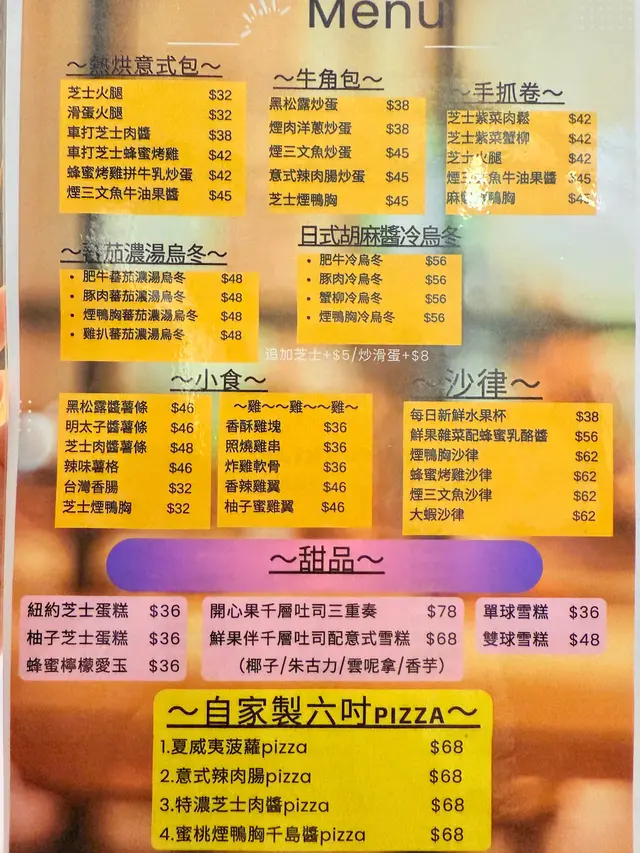 Menu
～熱烘意式包～
芝士火腿 $32
滑蛋火腿 $32
車打芝士肉醬 $38
車打芝士蜂蜜烤雞 $42
蜂蜜烤雞拼牛乳炒蛋 $42
煙三文魚牛油果醬 $45
～牛角包～
黑松露炒蛋 $38
煙肉洋蔥炒蛋 $38
煙三文魚炒蛋 $45
意式辣肉腸炒蛋 $45
芝士煙鴨胸 $45
～手抓卷～
芝士紫菜肉鬆 $42
芝士紫菜蟹柳 $42
芝士火腿 $42
煙三文魚牛油果醬 $45
鴨胸 $45
～蕃茄濃湯烏冬～
• 肥牛蕃茄濃湯烏冬 $48
• 豚肉蕃茄濃湯烏冬 $48
• 煙鴨胸蕃茄濃湯烏冬 $48
• 雞扒蕃茄濃湯烏冬 $48
日式胡麻醬冷烏冬
• 肥牛冷烏冬 $56
• 豚肉冷烏冬 $56
• 蟹柳冷烏冬 $56
• 煙鴨胸冷烏冬 $56
追加芝士+$5/炒滑蛋+$8
～小食～
黑松露醬薯條 $46
明太子醬薯條 $46
芝士肉醬薯條 $48
辣味薯格 $46
台灣香腸 $32
芝士煙鴨胸 $32
～雞～～雞～～雞～
香酥雞塊 $36
照燒雞串 $36
炸雞軟骨 $36
香辣雞翼 $46
柚子蜜雞翼 $46
～沙律～
每日新鮮水果杯 $38
鮮果雜菜配蜂蜜乳酪醬 $56
煙鴨胸沙律 $62
蜂蜜烤雞沙律 $62
煙三文魚沙律 $62
大蝦沙律 $62
～甜品～
紐約芝士蛋糕 $36
柚子芝士蛋糕 $36
蜂蜜檸檬愛玉 $36
開心果千層吐司三重奏 $78
鮮果伴千層吐司配意式雪糕 $68
（椰子/朱古力/雲呢拿/香芋）
單球雪糕 $36
雙球雪糕 $48
～自家製六吋PIZZA～
1.夏威夷菠蘿pizza $68
2.意式辣肉腸pizza $68
3.特濃芝士肉醬pizza $68
4.蜜桃煙鴨胸千島醬pizza $68